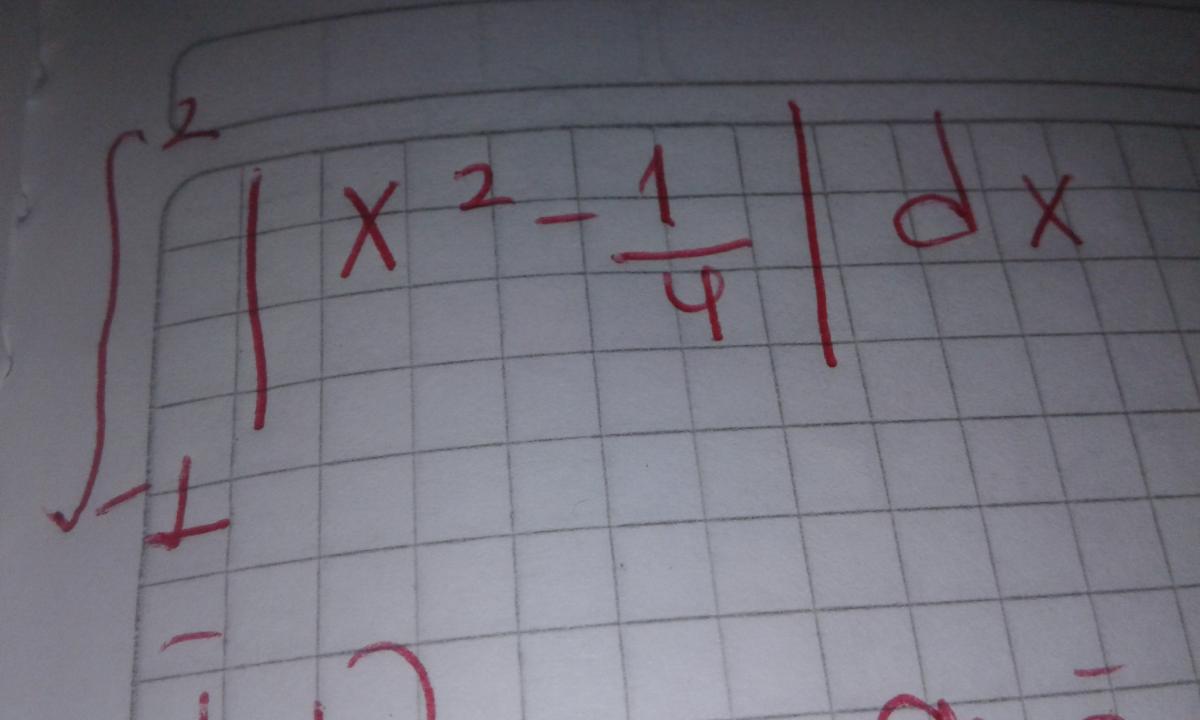 ∫_{-1}^{2} | x² - 1/4 | dx